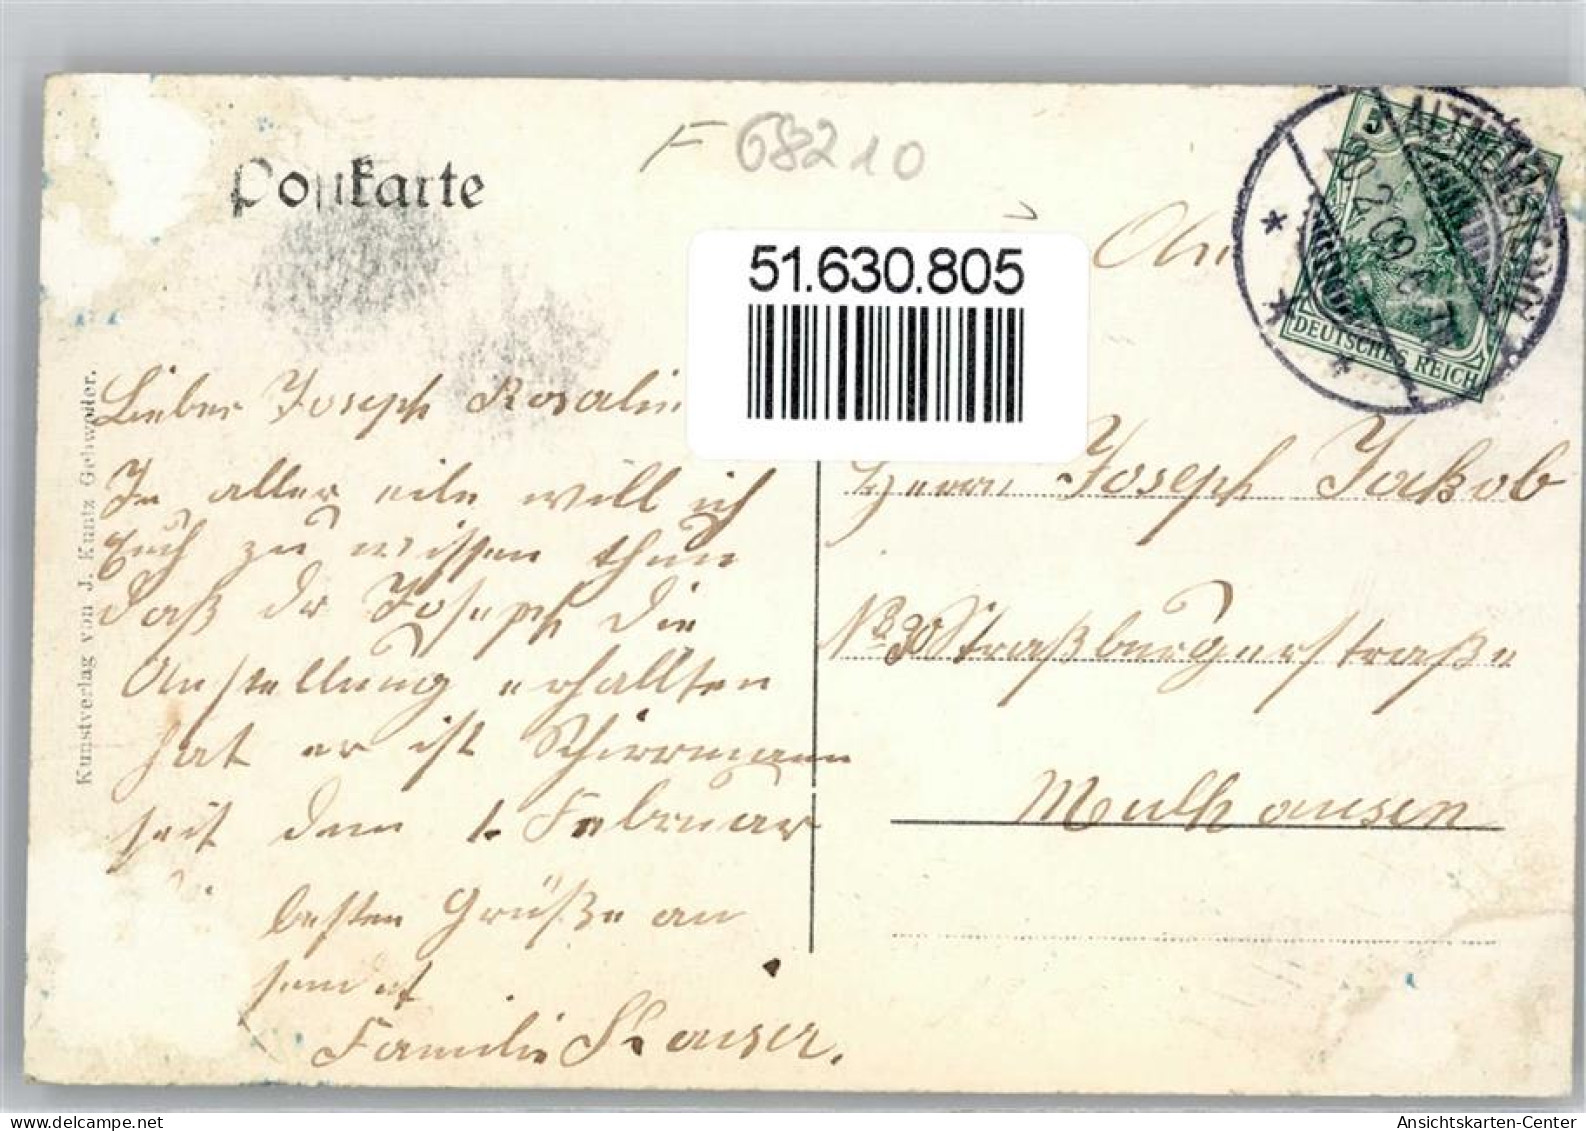 F 68210
Postkarte
51.630.805
5
ALTMÜNSTEROL
10.2.09
DEUTSCHES REICH
Kunstverlag von J. Kuntz Gebweiler.
Lieber Joseph Rosalin
In aller eile will ich
Euch zu wissen thun
daß dr Joseph die
Anstellung erhallten
hat er ist Schirrmann
seit dem 1. Februar
besten Grüße an
sendet
Familie Kauser.
Herrn Joseph Jakob
No 30 Straßburgerstraße
Mulhausen
Ansichtskarten-Center